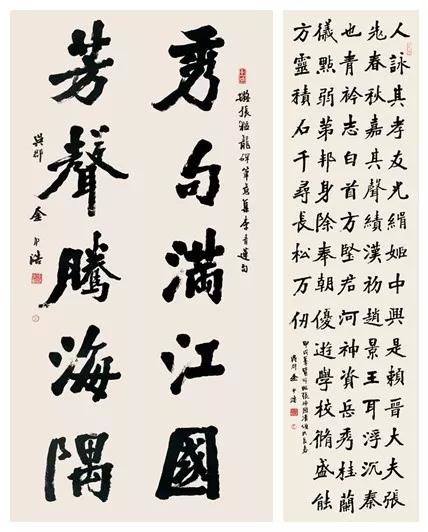 擬張猛龍碑筆意集李青蓮句
秀句滿江國
芳聲騰海隅
吳郡 金中浩
人詠其孝友光緝姬中興是賴晉大夫張
老春秋嘉其聲績漢初趙景王耳浮沉秦
也青衿志白首方堅君河神資岳秀桂蘭
儀點弱第邦身除奉朝優遊學校脩盛能
方靈積石千尋長松万仞
吳郡金中浩